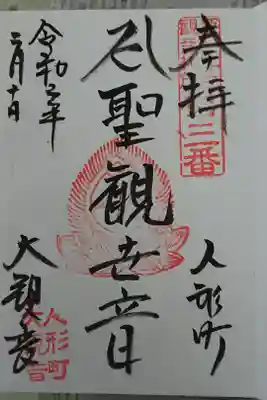 奉拝
三番
人形町
聖観世音
大観音
人形町
大観音
令和三年
二月十日